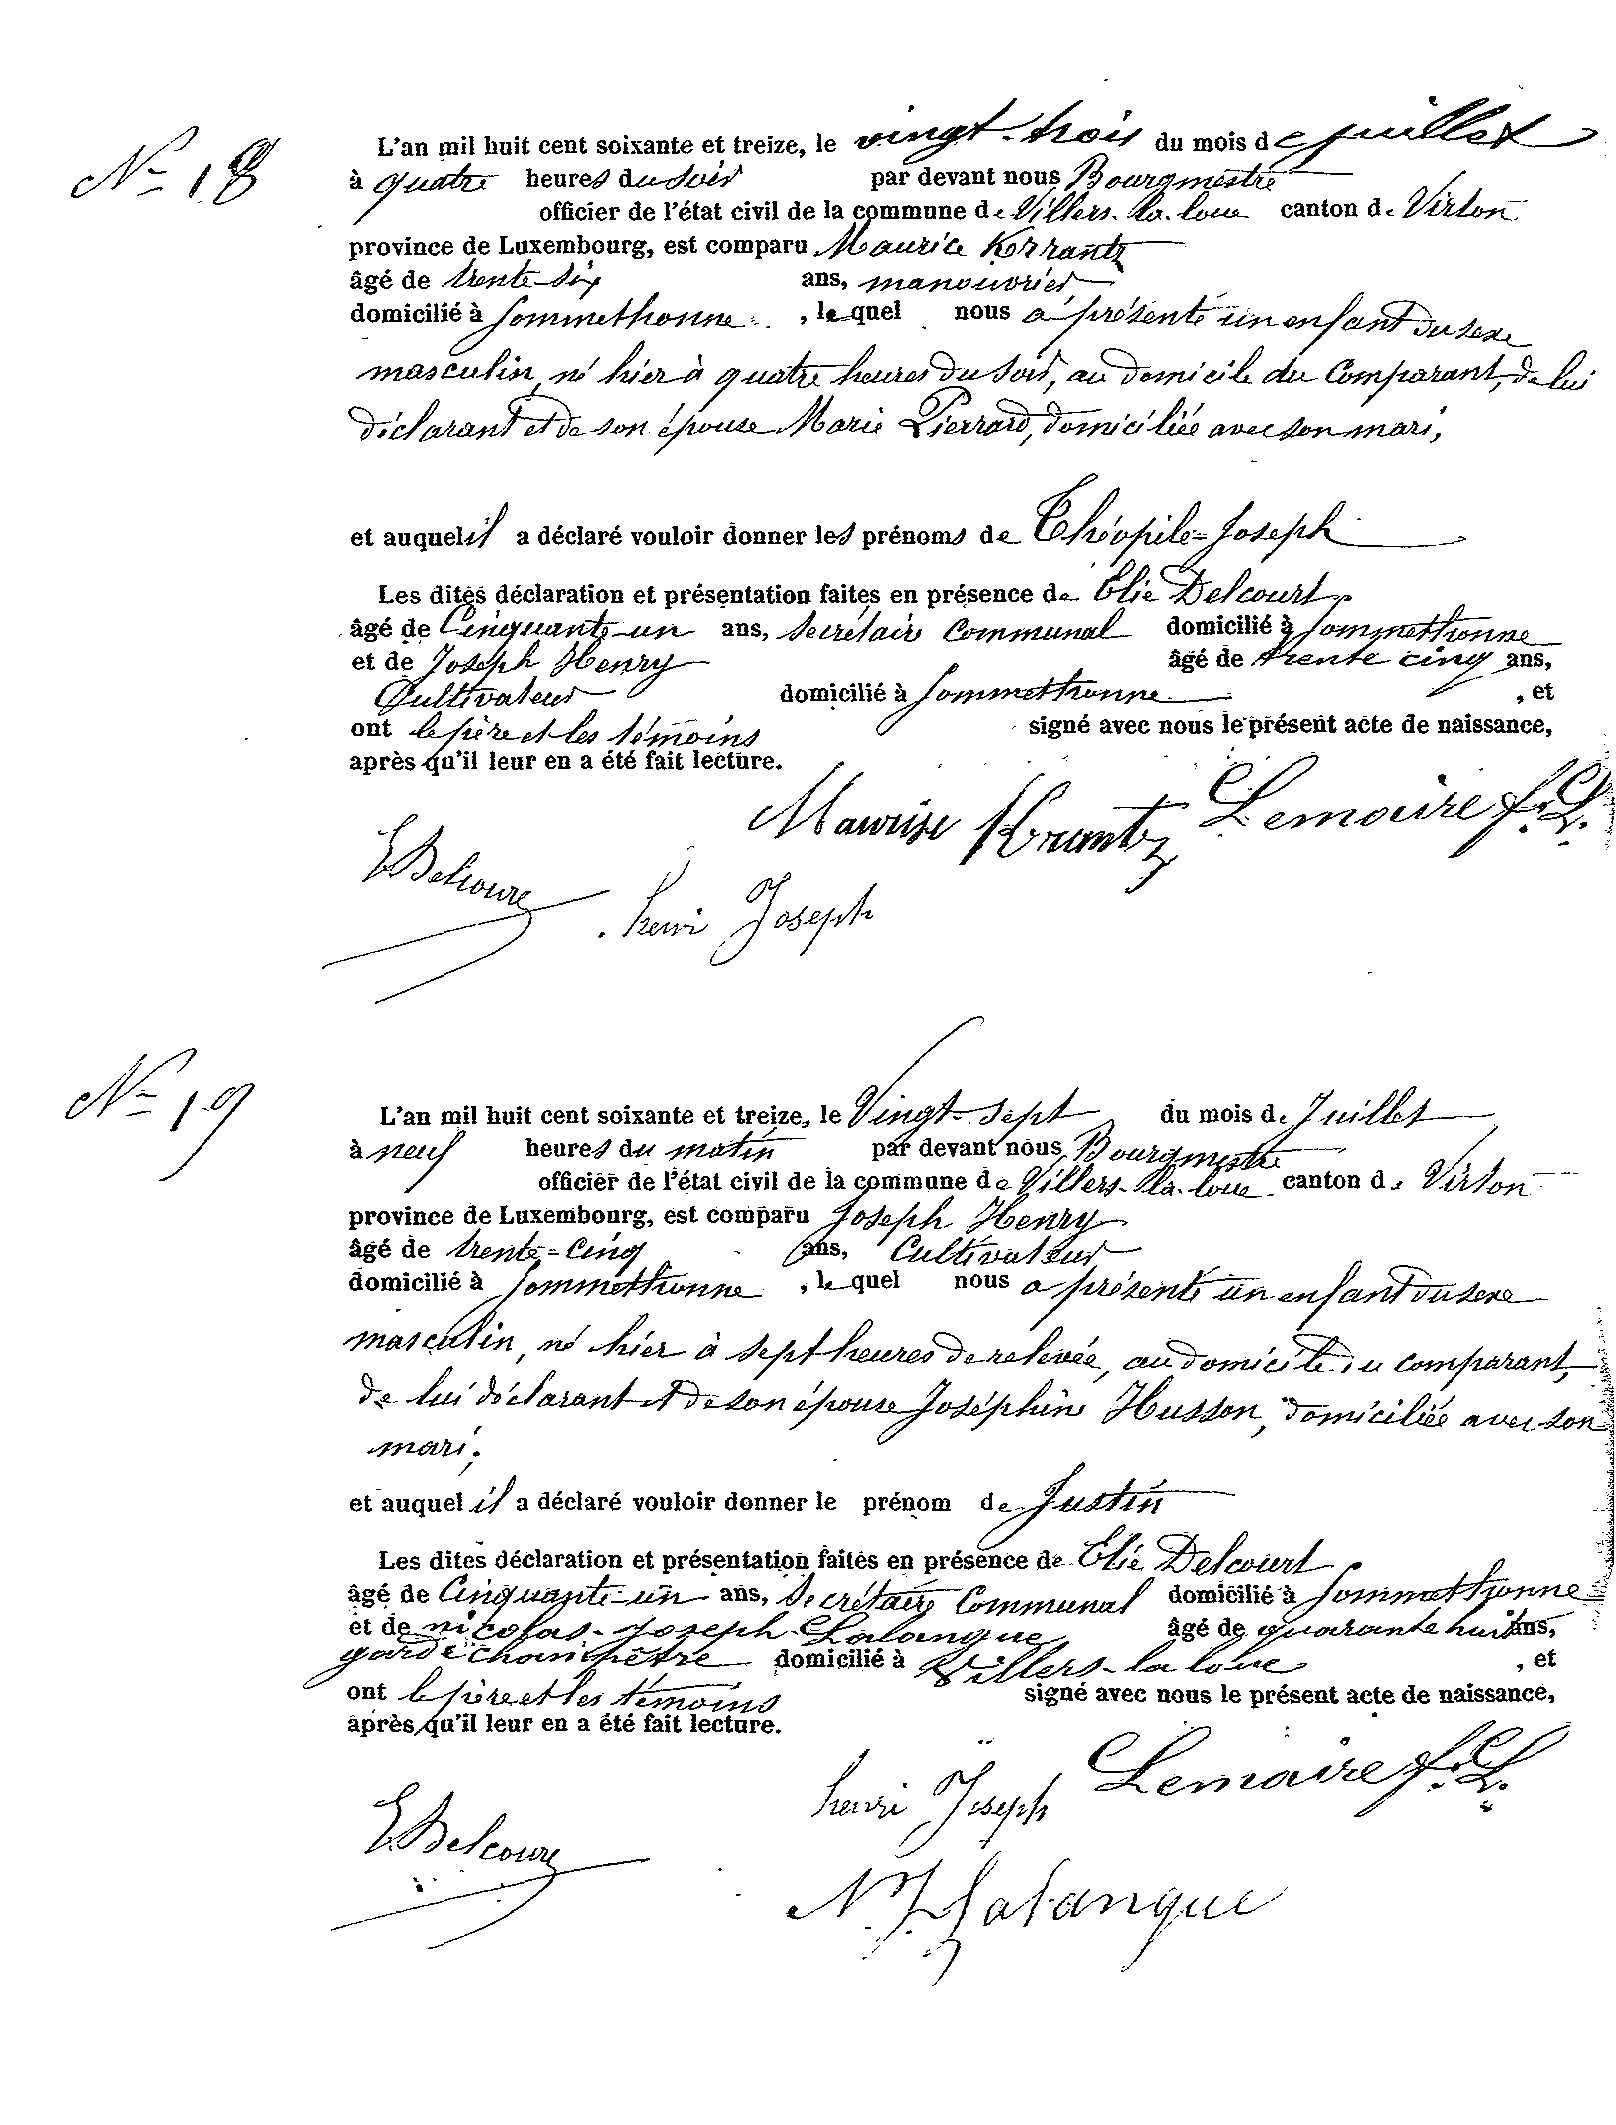 N° 18
L'an mil huit cent soixante et treize, le vingt-trois du mois de juillet
à quatre heures du soir par devant nous Bourgmestre
officier de l'état civil de la commune de Villers-la-loue canton de Virton
province de Luxembourg, est comparu Maurice Krrantz
âgé de trente-six ans, manouvrier
domicilié à Sommethonne, lequel nous a présenté un enfant du sexe
masculin, né hier à quatre heures du soir, au domicile du Comparant, de lui
déclarant et de son épouse Marie Pierrard, domiciliée avec son mari,
et auquel il a déclaré vouloir donner les prénoms de Théopile-Joseph
Les dites déclaration et présentation faites en présence de Elie Delcourt
âgé de Cinquante-un ans, Secrétair Communal domicilié à Sommethonne
et de Joseph Henry âgé de trente cinq ans,
Cultivateur domicilié à Sommethonne, et
ont le père et les témoins signé avec nous le présent acte de naissance,
après qu'il leur en a été fait lecture.
Maurise Krantz Lemaire f. L.
E Delcourt henri Joseph
N° 19
L'an mil huit cent soixante et treize, le Vingt-sept du mois de Juillet
à neuf heures du matin par devant nous Bourgmestre
officier de l'état civil de la commune de Villers-la-loue canton de Virton
province de Luxembourg, est comparu Joseph Henry
âgé de trente-cinq ans, Cultivateur
domicilié à Sommethonne, lequel nous a présenté un enfant du sexe
masculin, né hier à sept heures de relevée, au domicile du comparant,
de lui déclarant et de son épouse Joséphine Husson, domiciliée avec son
mari;
et auquel il a déclaré vouloir donner le prénom de Justin
Les dites déclaration et présentation faites en présence de Elie Delcourt
âgé de Cinquante-un ans, Secrétaire Communal domicilié à Sommethonne
et de nicolas-joseph-Lalangue âgé de quarante huit ans,
garde champêtre domicilié à Villers-la loue, et
ont le père et les témoins signé avec nous le présent acte de naissance,
après qu'il leur en a été fait lecture.
henri Joseph Lemaire f. L.
E Delcourt
N. J. Lalangue